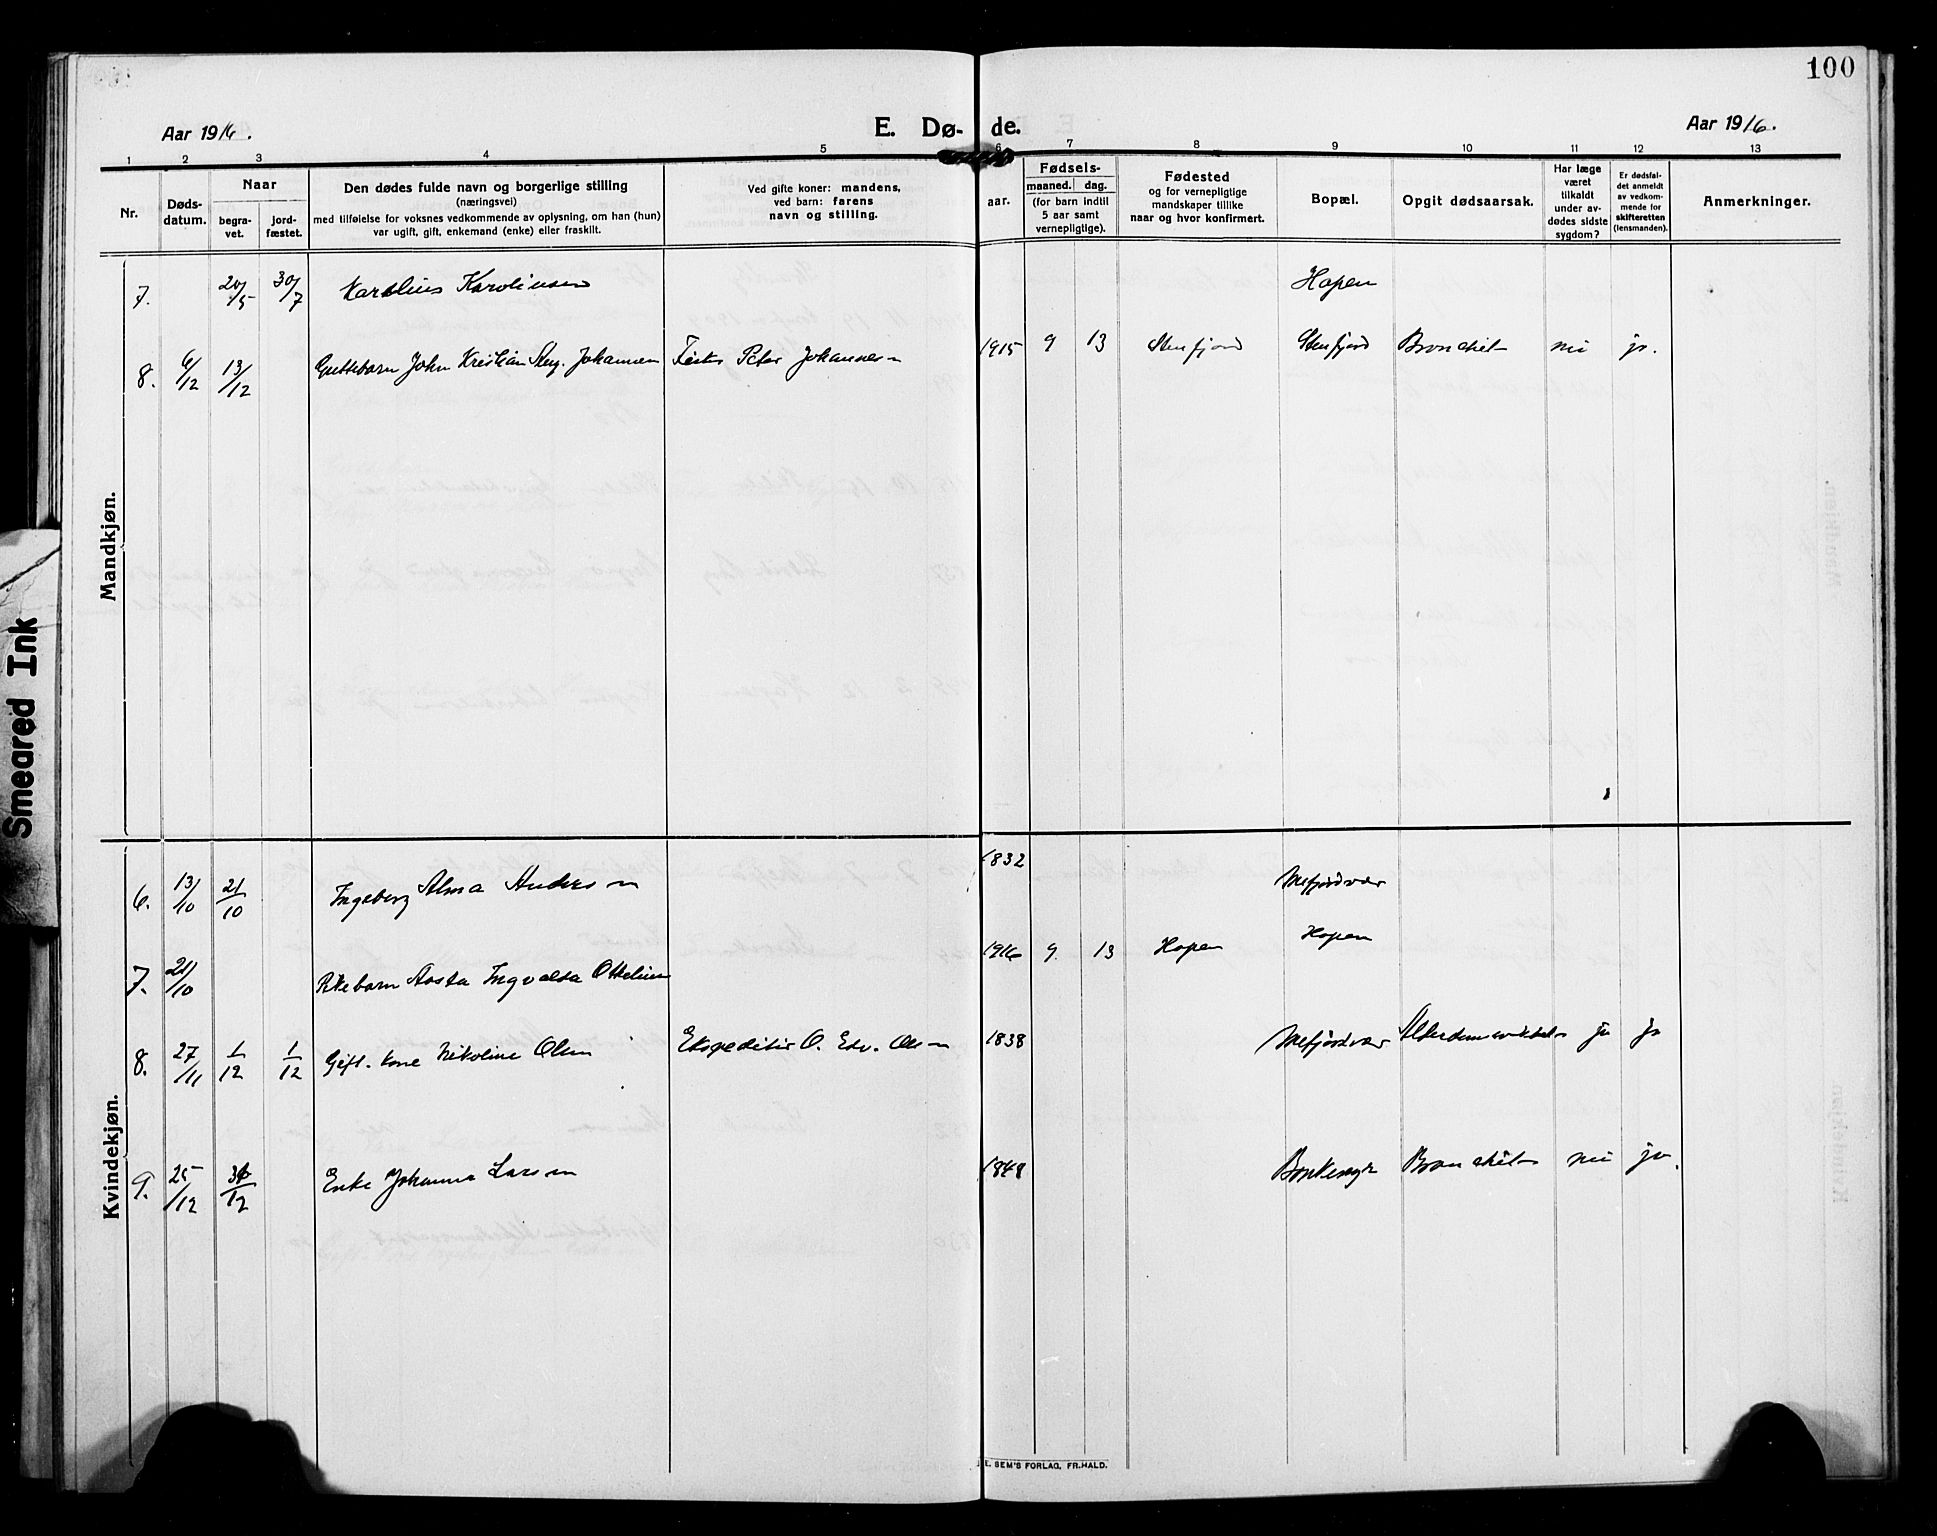 100
Aar 1916.
E. Dø- de.
Aar 1916.
1 2 3 4 5 6 7 8 9 10 11 12 13
Nr.
Døds-
datum.
Naar
begra-
vet.
jord-
fæstet.
Den dødes fulde navn og borgerlige stilling
(næringsvei)
med tilføielse for voksnes vedkommende av oplysning, om han (hun)
var ugift, gift, enkemand (enke) eller fraskilt.
Ved gifte koner: mandens,
ved barn: farens
navn og stilling.
aar.
Fødsels-
maaned. dag.
(for barn indtil
5 aar samt
vernepligtige).
Fødested
og for vernepligtige
mandskaper tillike
naar og hvor konfirmert.
Bopæl.
Opgit dødsaarsak.
Har læge
været
tilkaldt
under av-
dødes sidste
sygdom?
Er dødsfal-
det anmeldt
av vedkom-
mende for
skifteretten
(lensmanden).
Anmerkninger.
Mandkjøn.
7. 20/5 30/7 Karelius Karolinsen Hopen
8. 6/12 13/12 Guttebarn John Kristian Johansen Fisker Peter Johansen 1915 9 13 Stenfjord Stenfjord Bronchit nei ja.
Kvindekjøn.
6. 13/10 21/10 Ingeborg Alma Andersen 1832 Mefjordvær
7. 21/10 Pikebarn Aasta Ingvalda Ottelia 1916 9. 13 Hopen Hopen
8. 27/11 1/12 1/12 Gift. kone Nikoline Olsen Ekspeditør O. Edv. Olsen 1838 Mefjordvær Alderdomssvakhet ja ja
9. 25/12 /12 Enke Johanna Larsen 1848 Bronchit nei ja.
E. SEM'S FORLAG, FR.HALD.
Smeared Ink